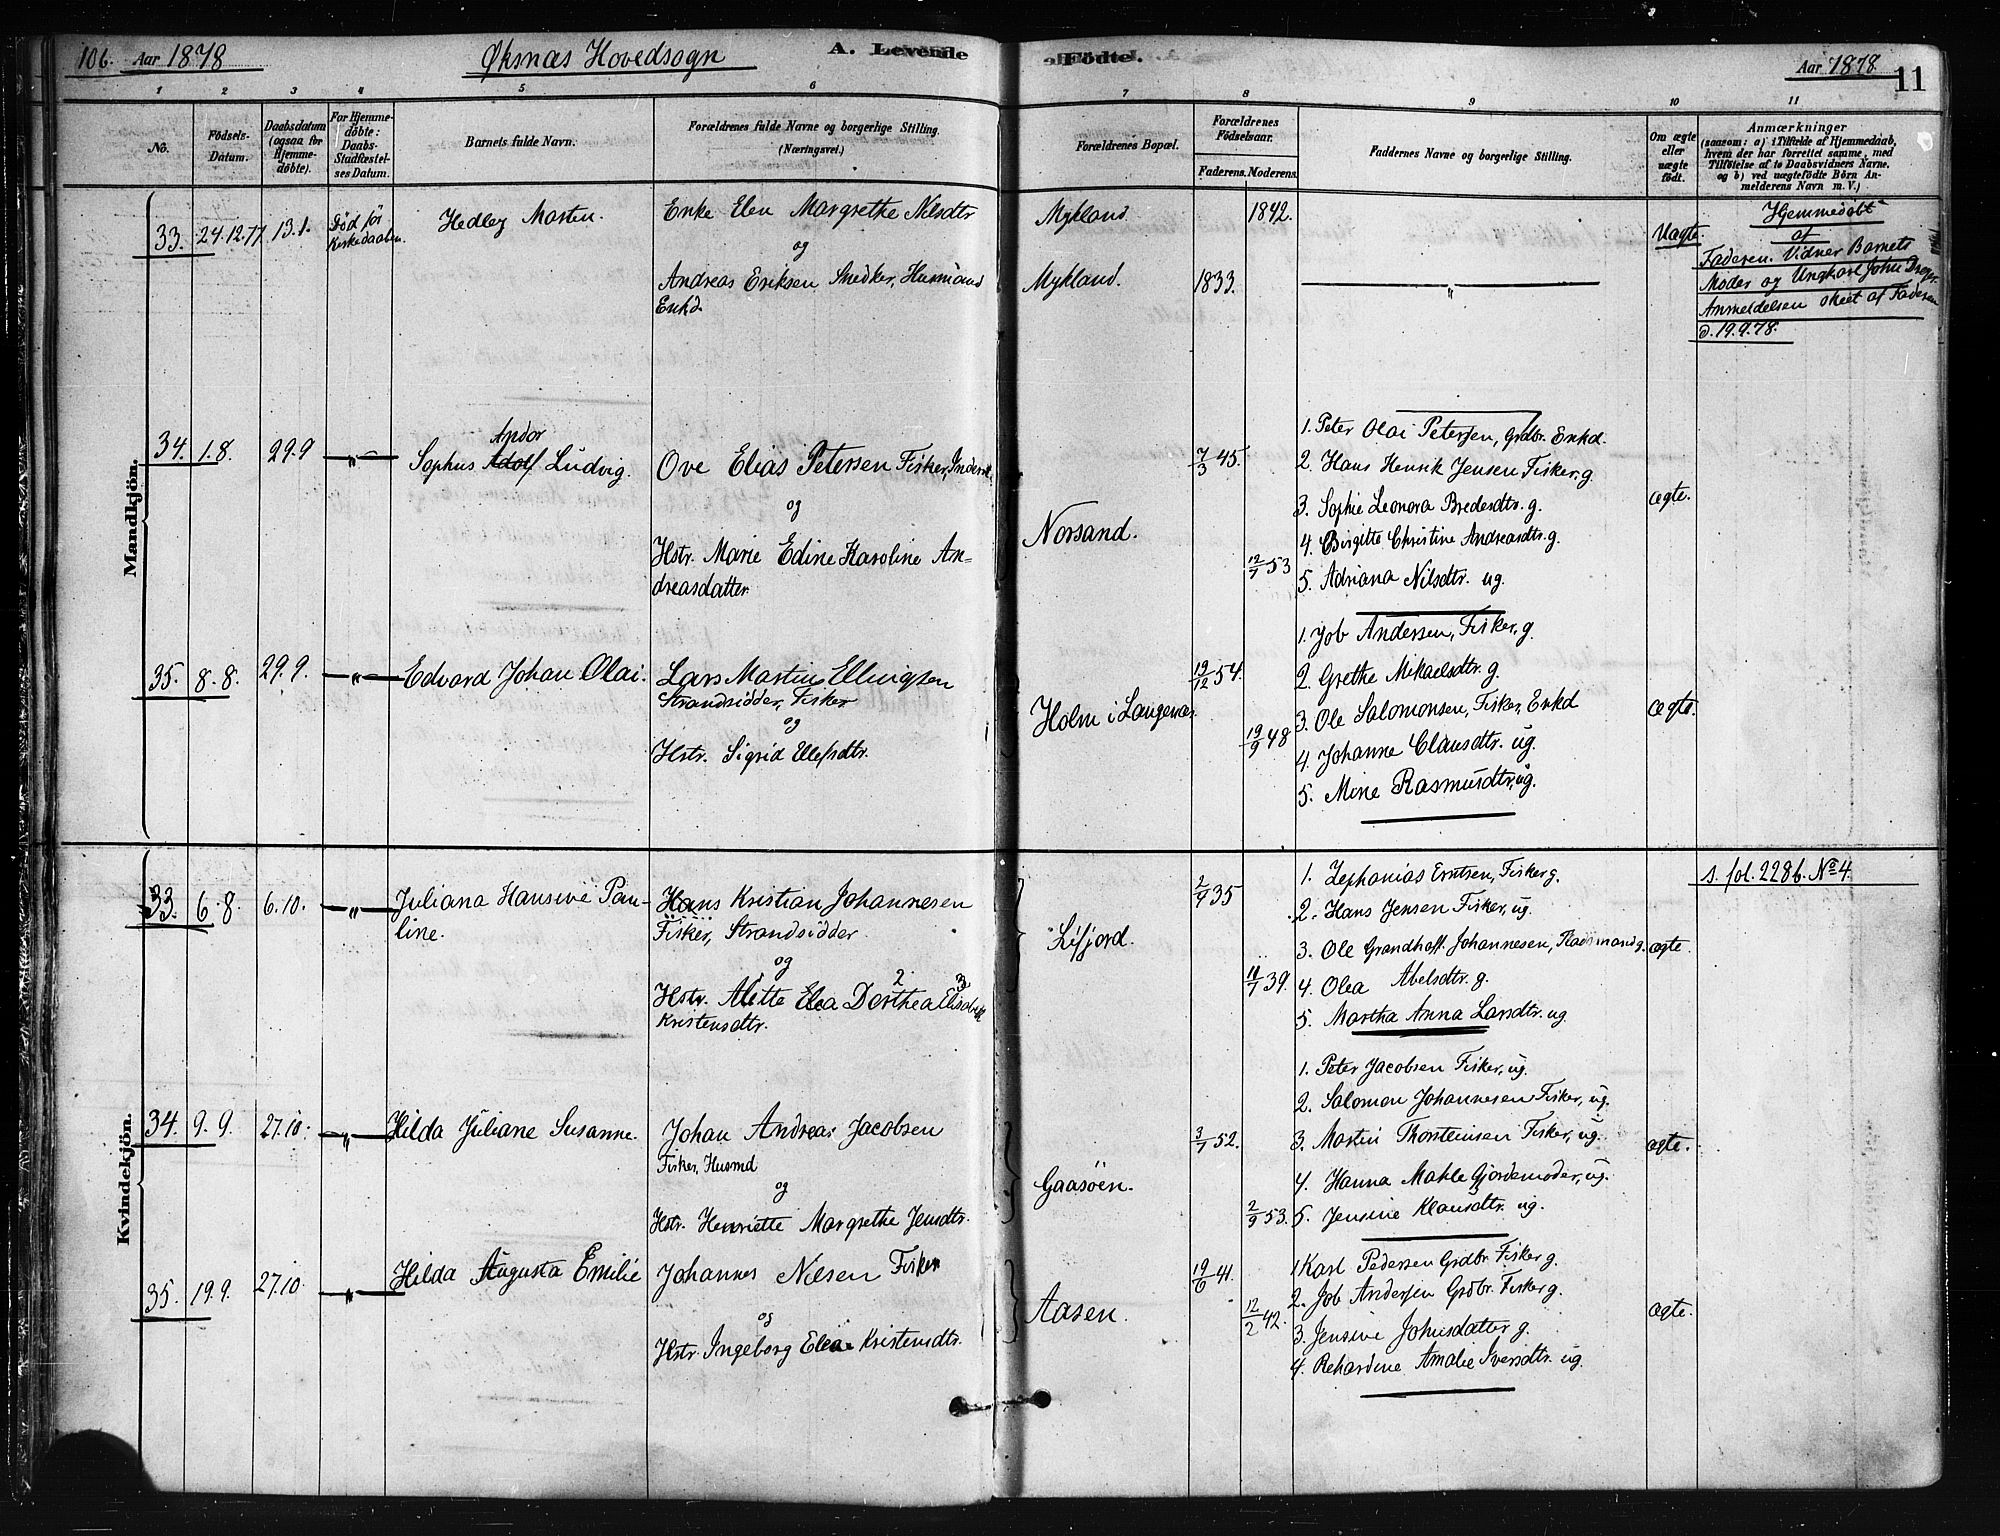 10b. Aar 1878 Øksnæs Hovedsogn A. Levende Födte. Aar 1878 11
1 2 3 4 5 6 7 8 9 10 11
No.
Födsels-Datum.
Daabsdatum (ogsaa for Hjemmedöbte).
For Hjemmedöbte: Daabs-Stadfæstelses Datum.
Barnets fulde Navn.
Forældrenes fulde Navne og borgerlige Stilling. (Næringsvei.)
Forældrenes Bopæl.
Forældrenes Födselsaar.
Faderens. Moderens.
Faddernes Navne og borgerlige Stilling.
Om ægte eller uægte födt.
Anmærkninger
(saasom: a) i Tilfælde af Hjemmedaab,
hvem der har forrettet samme, med
Tilföielse af to Daabsvidners Navne.
og b) ved uægtefödte Börn An-
melderens Navn m. V.)
Mandkjön.
33. 24.12.77 13.1. Död før Kirkedaaben. Hedley Morten.
Enke Elen Margrethe Nilsdtr
og
Andreas Eriksen Snedker, Husmand
Enkd.
Mykland 1842.
Mykland. 1833.
Uægte.
Hjemmedöbt
af
Faderen. Vidner Barnets
Moder og Ungkarl John Dreyer.
Anmeldelsen skeet af Faderen
d. 19.9.78.
34. 1.8. 29.9 —„— Sophus Adolf Ludvig.
Andor
Ove Elias Petersen Fisker, Inderst
og
Hstr. Marie Edine Karoline An-
dreasdatter
Norsand.
7/3 45.
12/7 53
1. Peter Olai Petersen, Grdbr. Enkd.
2. Hans Henrik Jensen Fisker, g.
3. Sophie Leonora Bredesdtr. g.
4. Birgitte Christine Andreasdtr. g.
5. Adriana Nilsdtr. ug.
ægte.
35. 8.8. 29.9. —„— Edvard Johan Olai.
Lars Martin Ellingsen
Strandsidder, Fisker
og
Hstr. Sigrid Ellefsdtr.
Holm i Langenæs.
19/12 54.
19/9 48
1. Job Andersen, Fisker, g.
2. Grethe Mikaelsdtr. g.
3. Ole Salomonsen, Fisker, Enkd
4. Johanne Clausdtr. ug.
5. Mine Rasmusdtr, ug.
ægte.
Kvindekjön.
33. 6.8. 6.10. —„— Juliana Hansine Pau-
line.
Hans Kristian Johannesen
Fisker, Strandsidder
og
Hstr. Alette Elea Dorthea Elisabeth
2. 3
Kristensdtr.
Lifjord.
2/9 35
11/7 39.
1. Zephanias Erntsen, Fisker g.
2. Hans Jensen Fisker, ug.
3. Ole Grandhoff Johannesen, Raadsmand g.
4. Olea Abelsdtr. g.
5. Martha Anna Larsdtr. ug.
ægte.
s. fol. 228b. No 4.
34. 9.9. 27.10. —„— Hilda Juliane Susanne.
Johan Andreas Jacobsen
Fisker, Husmd
og
Hstr. Henriette Margrethe Jensdtr.
Gaasöen.
3/7 52.
2/9 53.
1. Peter Jacobsen Fisker, ug.
2. Salomon Johannesen Fisker, ug.
3. Martin Thorsteinsen Fisker, ug.
4. Hanna Mahle Gjordemoder, ug.
5. Jensine Klausdtr. ug.
ægte.
35. 19.9. 27.10. —„— Hilda Augusta Emilie
Johannes Nilsen Fisker
og
Hstr. Ingeborg Elea Kristensdtr.
Aasen.
19/6 41.
12/2 42.
1 Karl Pedersen Grdbr. Fisker g.
2. Job Andersen Grdbr. Fisker g.
3. Jensine Johnsdatter g.
4. Rehardine Amalie Iversdtr. ug.
ægte.